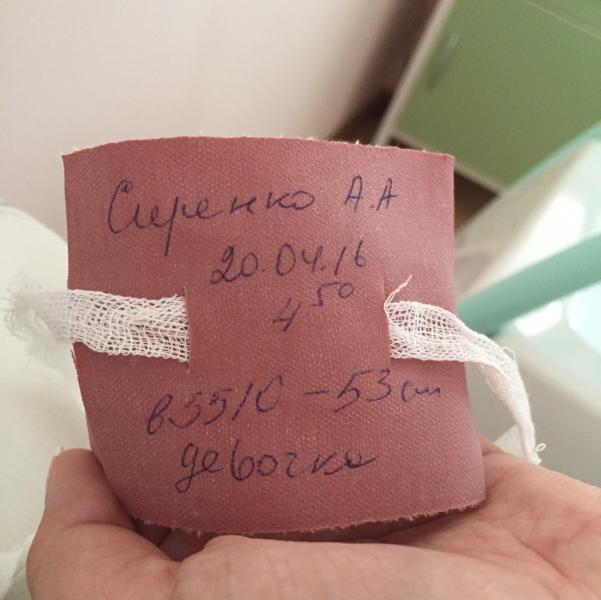 Сиренко А.А
20.04.16
4 50
в 3510 - 53 см
девочка